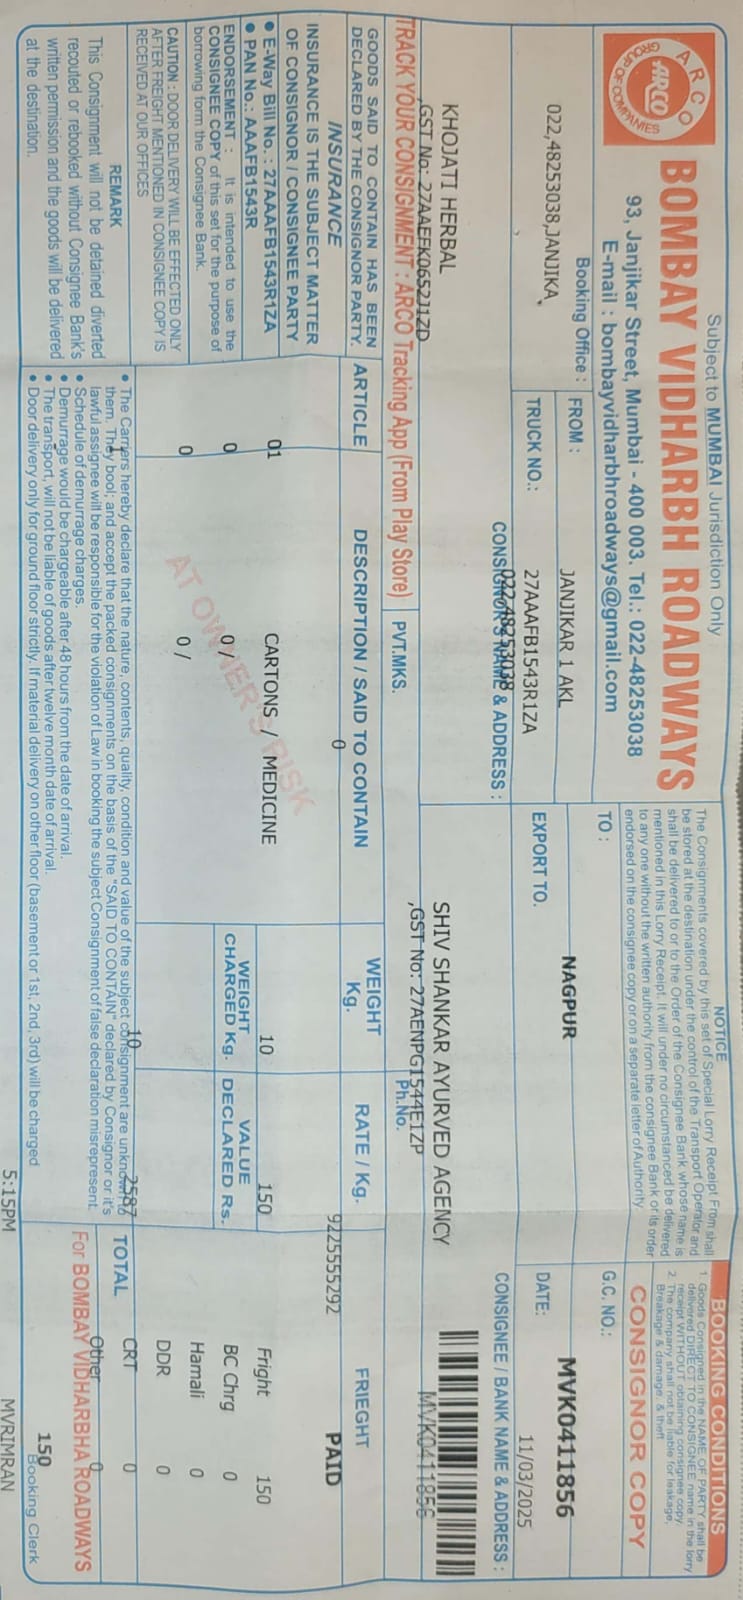 Subject to MUMBAI Jurisdiction Only
ARCO
ARCO
GROUP OF COMPANIES
BOMBAY VIDHARBH ROADWAYS
93, Janjikar Street, Mumbai - 400 003. Tel.: 022-48253038
E-mail : bombayvidharbhroadways@gmail.com
NOTICE
The Consignments covered by this set of Special Lorry Receipt From shall
be stored at the destination under the control of the Transport Operator and
shall be delivered to or to the Order of the Consignee Bank whose name is
mentioned in this Lorry Receipt. It will under no circumstanced be delivered
to any one without the written authority from the consignee Bank or its order
endorsed on the consignee copy or on a separate letter of Authority
BOOKING CONDITIONS
1. Goods Consigned in the NAME OF PARTY shall be
delivered DIRECT TO CONSIGNEE name in the lorry
receipt WITHOUT obtaining consignee copy.
2. The company shall not be liable for leakage,
Breakage & damage, & theft
CONSIGNOR COPY
Booking Office :
022,48253038,JANJIKA,
,
FROM :
JANJIKAR 1 AKL
TO :
NAGPUR
G.C. NO.:
MVK0411856
TRUCK NO.:
27AAAFB1543R1ZA
EXPORT TO.
DATE:
11/03/2025
CONSIGNOR'S NAME & ADDRESS :
022,48253038
CONSIGNEE / BANK NAME & ADDRESS :
KHOJATI HERBAL
,GST No: 27AAEFK0652J1ZD
SHIV SHANKAR AYURVED AGENCY
,GST No: 27AENPG1544E1ZP
MVK0411856
TRACK YOUR CONSIGNMENT : ARCO Tracking App (From Play Store)
PVT.MKS.
Ph.No.
GOODS SAID TO CONTAIN HAS BEEN
DECLARED BY THE CONSIGNOR PARTY.
ARTICLE
DESCRIPTION / SAID TO CONTAIN
WEIGHT
Kg.
RATE / Kg.
FRIEGHT
0
9225555292
PAID
INSURANCE
INSURANCE IS THE SUBJECT MATTER
OF CONSIGNOR / CONSIGNEE PARTY
• E-Way Bill No. : 27AAAFB1543R1ZA
• PAN No.: AAAFB1543R
01
CARTONS / MEDICINE
10
150
Fright 150
ENDORSEMENT : It is intended to use the
CONSIGNEE COPY of this set for the purpose of
borrowing form the Consignee Bank.
0
0 /
WEIGHT
CHARGED Kg.
VALUE
DECLARED Rs.
BC Chrg 0
Hamali 0
CAUTION : DOOR DELIVERY WILL BE EFFECTED ONLY
AFTER FREIGHT MENTIONED IN CONSIGNEE COPY IS
RECEIVED AT OUR OFFICES
0
0 /
AT OWNER'S RISK
DDR 0
CRT 0
1
10
2587
TOTAL
Other 0
150
REMARK
This Consignment will not be detained diverted
recouted or rebooked without Consignee Bank's
written permission and the goods will be delivered
at the destination.
• The Carriers hereby declare that the nature, contents, quality, condition and value of the subject consignment are unknown to
them. They bool; and accept the packed consignments on the basis of the "SAID TO CONTAIN" declared by Consignor or it's
lawful assignee will be responsible for the violation of Law in booking the subject Consignment of false declaration misrepresent.
• Schedule of demurrage charges.
• Demurrage would be chargeable after 48 hours from the date of arrival.
• The transport, will not be liable of goods after twelve month date of arrival.
• Door delivery only for ground floor strictly. If material delivery on other floor (basement or 1st, 2nd, 3rd) will be charged
For BOMBAY VIDHARBHA ROADWAYS
Booking Clerk
5:15PM
MVRIMRAN